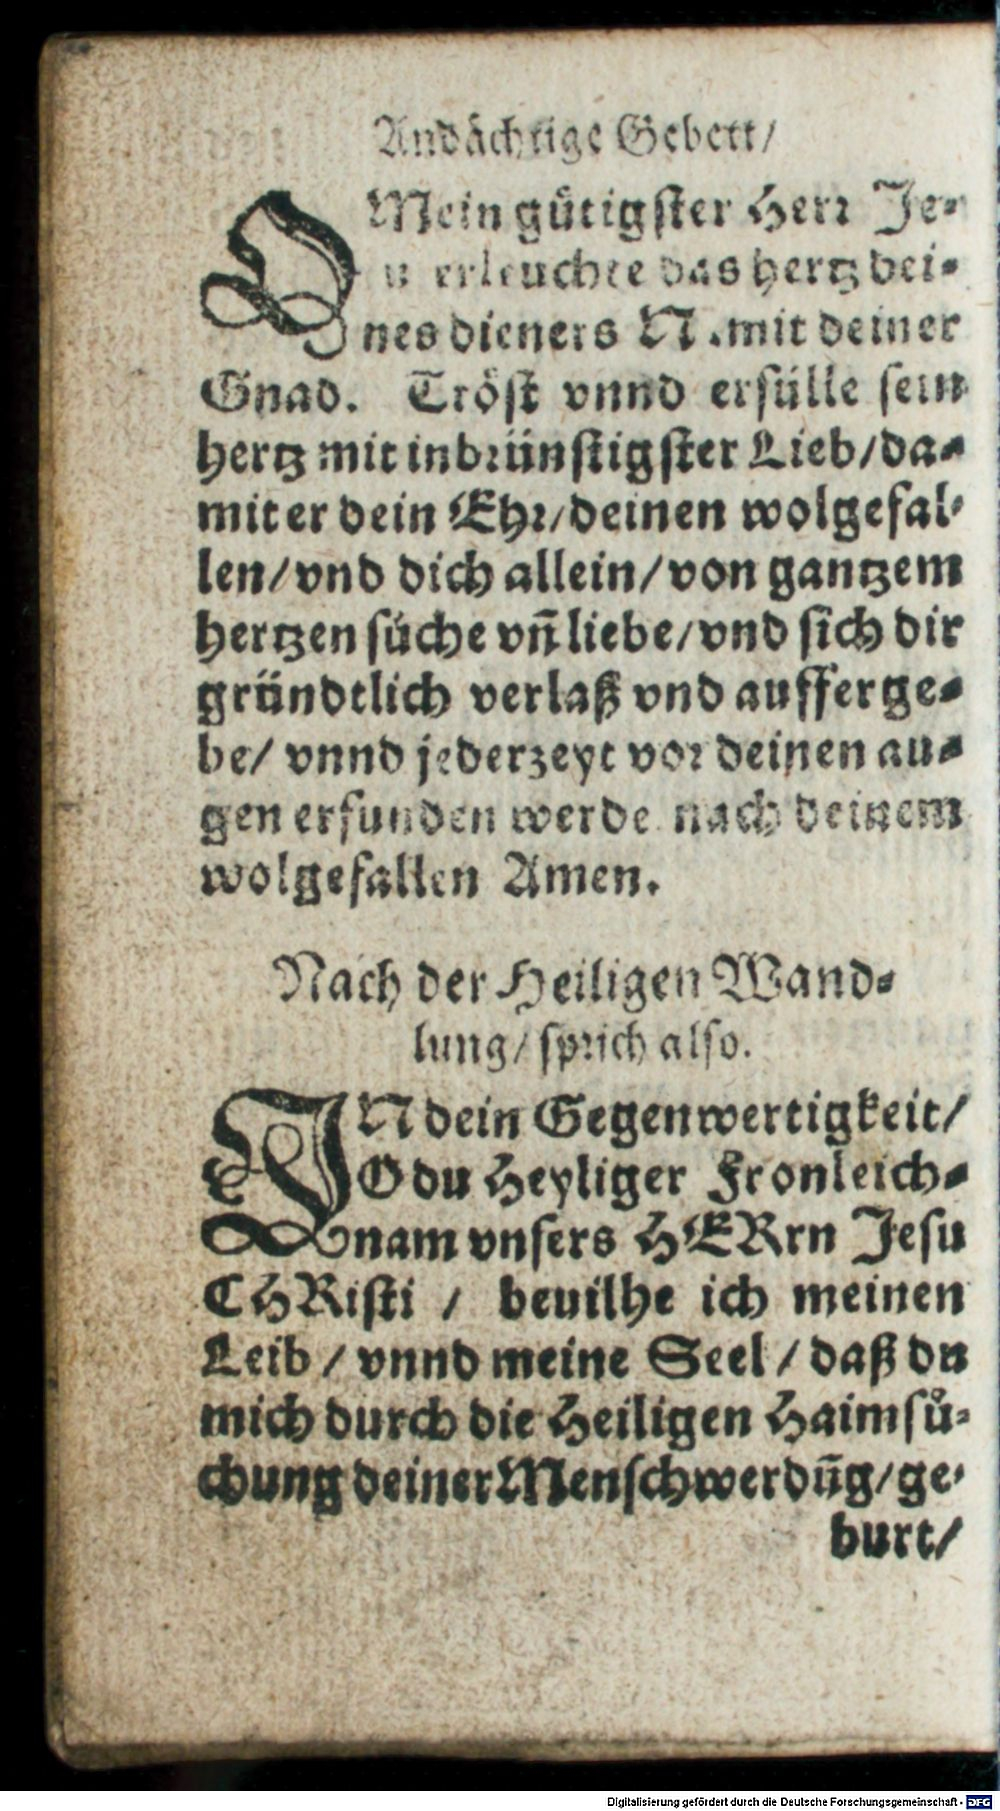 Andächtige Gebett/
O Mein gütigster Herr Je-
u erleuchte das hertz dei-
nes dieners N. mit deiner
Gnad. Tröst vnnd erfülle sein
hertz mit inbrünstigster Lieb/da-
mit er dein Ehr/deinen wolgefal-
len/vnd dich allein/von gantzem
hertzen süche vñ liebe/vnd sich dir
gründtlich verlaß vnd auffferge-
be/ vnnd jederzeyt vor deinen au-
gen erfunden werde nach deinem
wolgefallen Amen.
Nach der Heiligen Wand-
lung/ sprich also.
IN dein Gegenwertigkeit/
O du Heyliger Fronleich-
nam vnsers HERrn Jesu
CHRisti / beuilhe ich meinen
Leib / vnnd meine Seel / daß du
mich durch die Heiligen Haimsů-
chung deiner Menschwerdūg/ge-
burt/
Digitalisierung gefördert durch die Deutsche Forschungsgemeinschaft - DFG